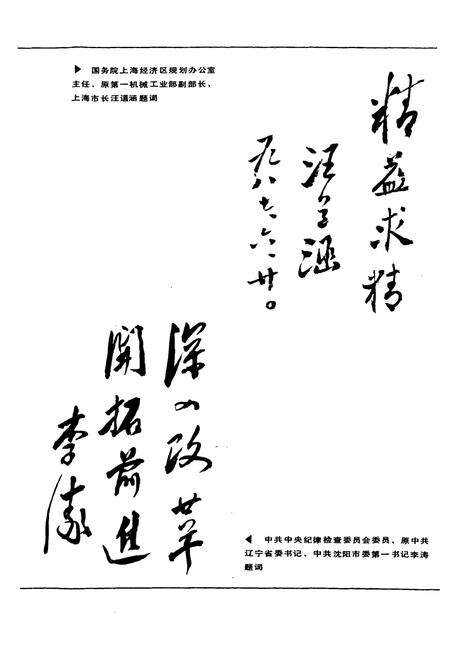 ▶ 国务院上海经济区规划办公室
主任、原第一机械工业部副部长、
上海市长汪道涵题词
精益求精
汪道涵
一九八七、六、廿。
深入改革
開拓前進
李濤
◀ 中共中央纪律检查委员会委员、原中共
辽宁省委书记、中共沈阳市委第一书记李涛
题词